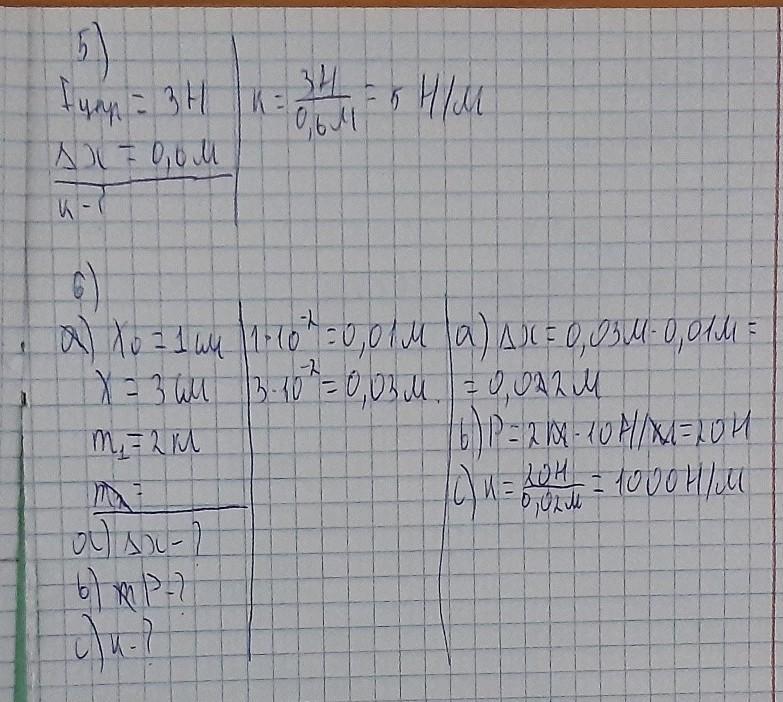 5)
Fупр = 3Н
Δx = 0,6м
к - ?
к = 3Н/0,6м = 5 Н/м
6)
а) x₀ = 1 см
x = 3 см
m₁ = 2 кг
а) Δx - ?
b) P - ?
c) к - ?
1·10⁻² = 0,01 м
3·10⁻² = 0,03 м.
а) Δx = 0,03м - 0,01м =
= 0,02 м
b) P = 2кг · 10 Н/кг = 20Н
c) к = 20Н/0,02м = 1000 Н/м